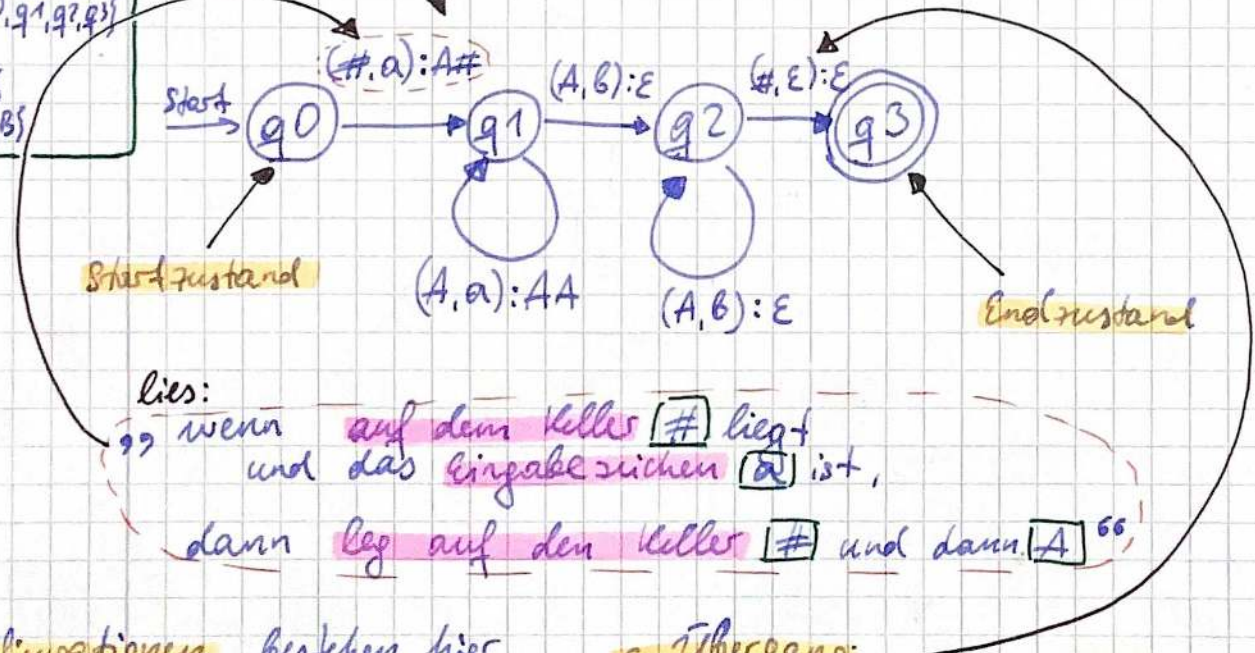 ,q1,q2,q3}
B}
Start
q0
(#,a):A#
q1
(A,b):ε
q2
(#,ε):ε
q3
(A,a):AA
(A,b):ε
Startzustand
Endzustand
lies:
„ wenn auf dem Keller # liegt
und das Eingabezeichen a ist,
dann leg auf den Keller # und dann A “
bestehen hier Übergang: